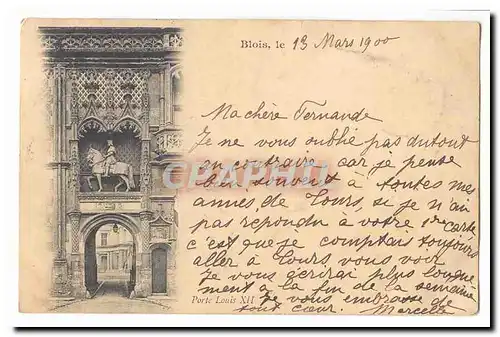 Blois, le 13 Mars 1900
Ma chère Fernande
Je ne vous oublie pas du tout
au contraire car je pense
bien souvent à toutes mes
amies, de Tours, si je n'ai
pas répondu à votre 1re carte
c'est que je comptais toujours
aller à Tours vous voir
Je vous écrirai plus longue
ment à la fin de la semaine
Je vous embrasse de
tout cœur. Marcelle
Porte Louis XII
CPARAMA